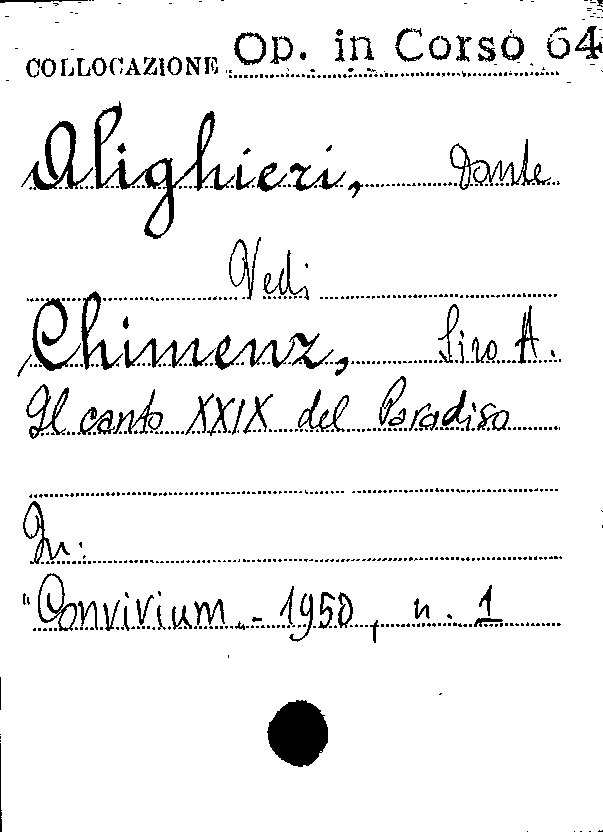 COLLOCAZIONE Op. in Corso 64
Alighieri, Dante
Vedi
Chimenz, Siro A.
Il canto XXIX del Paradiso
In:
"Convivium„ - 1950, n. 1